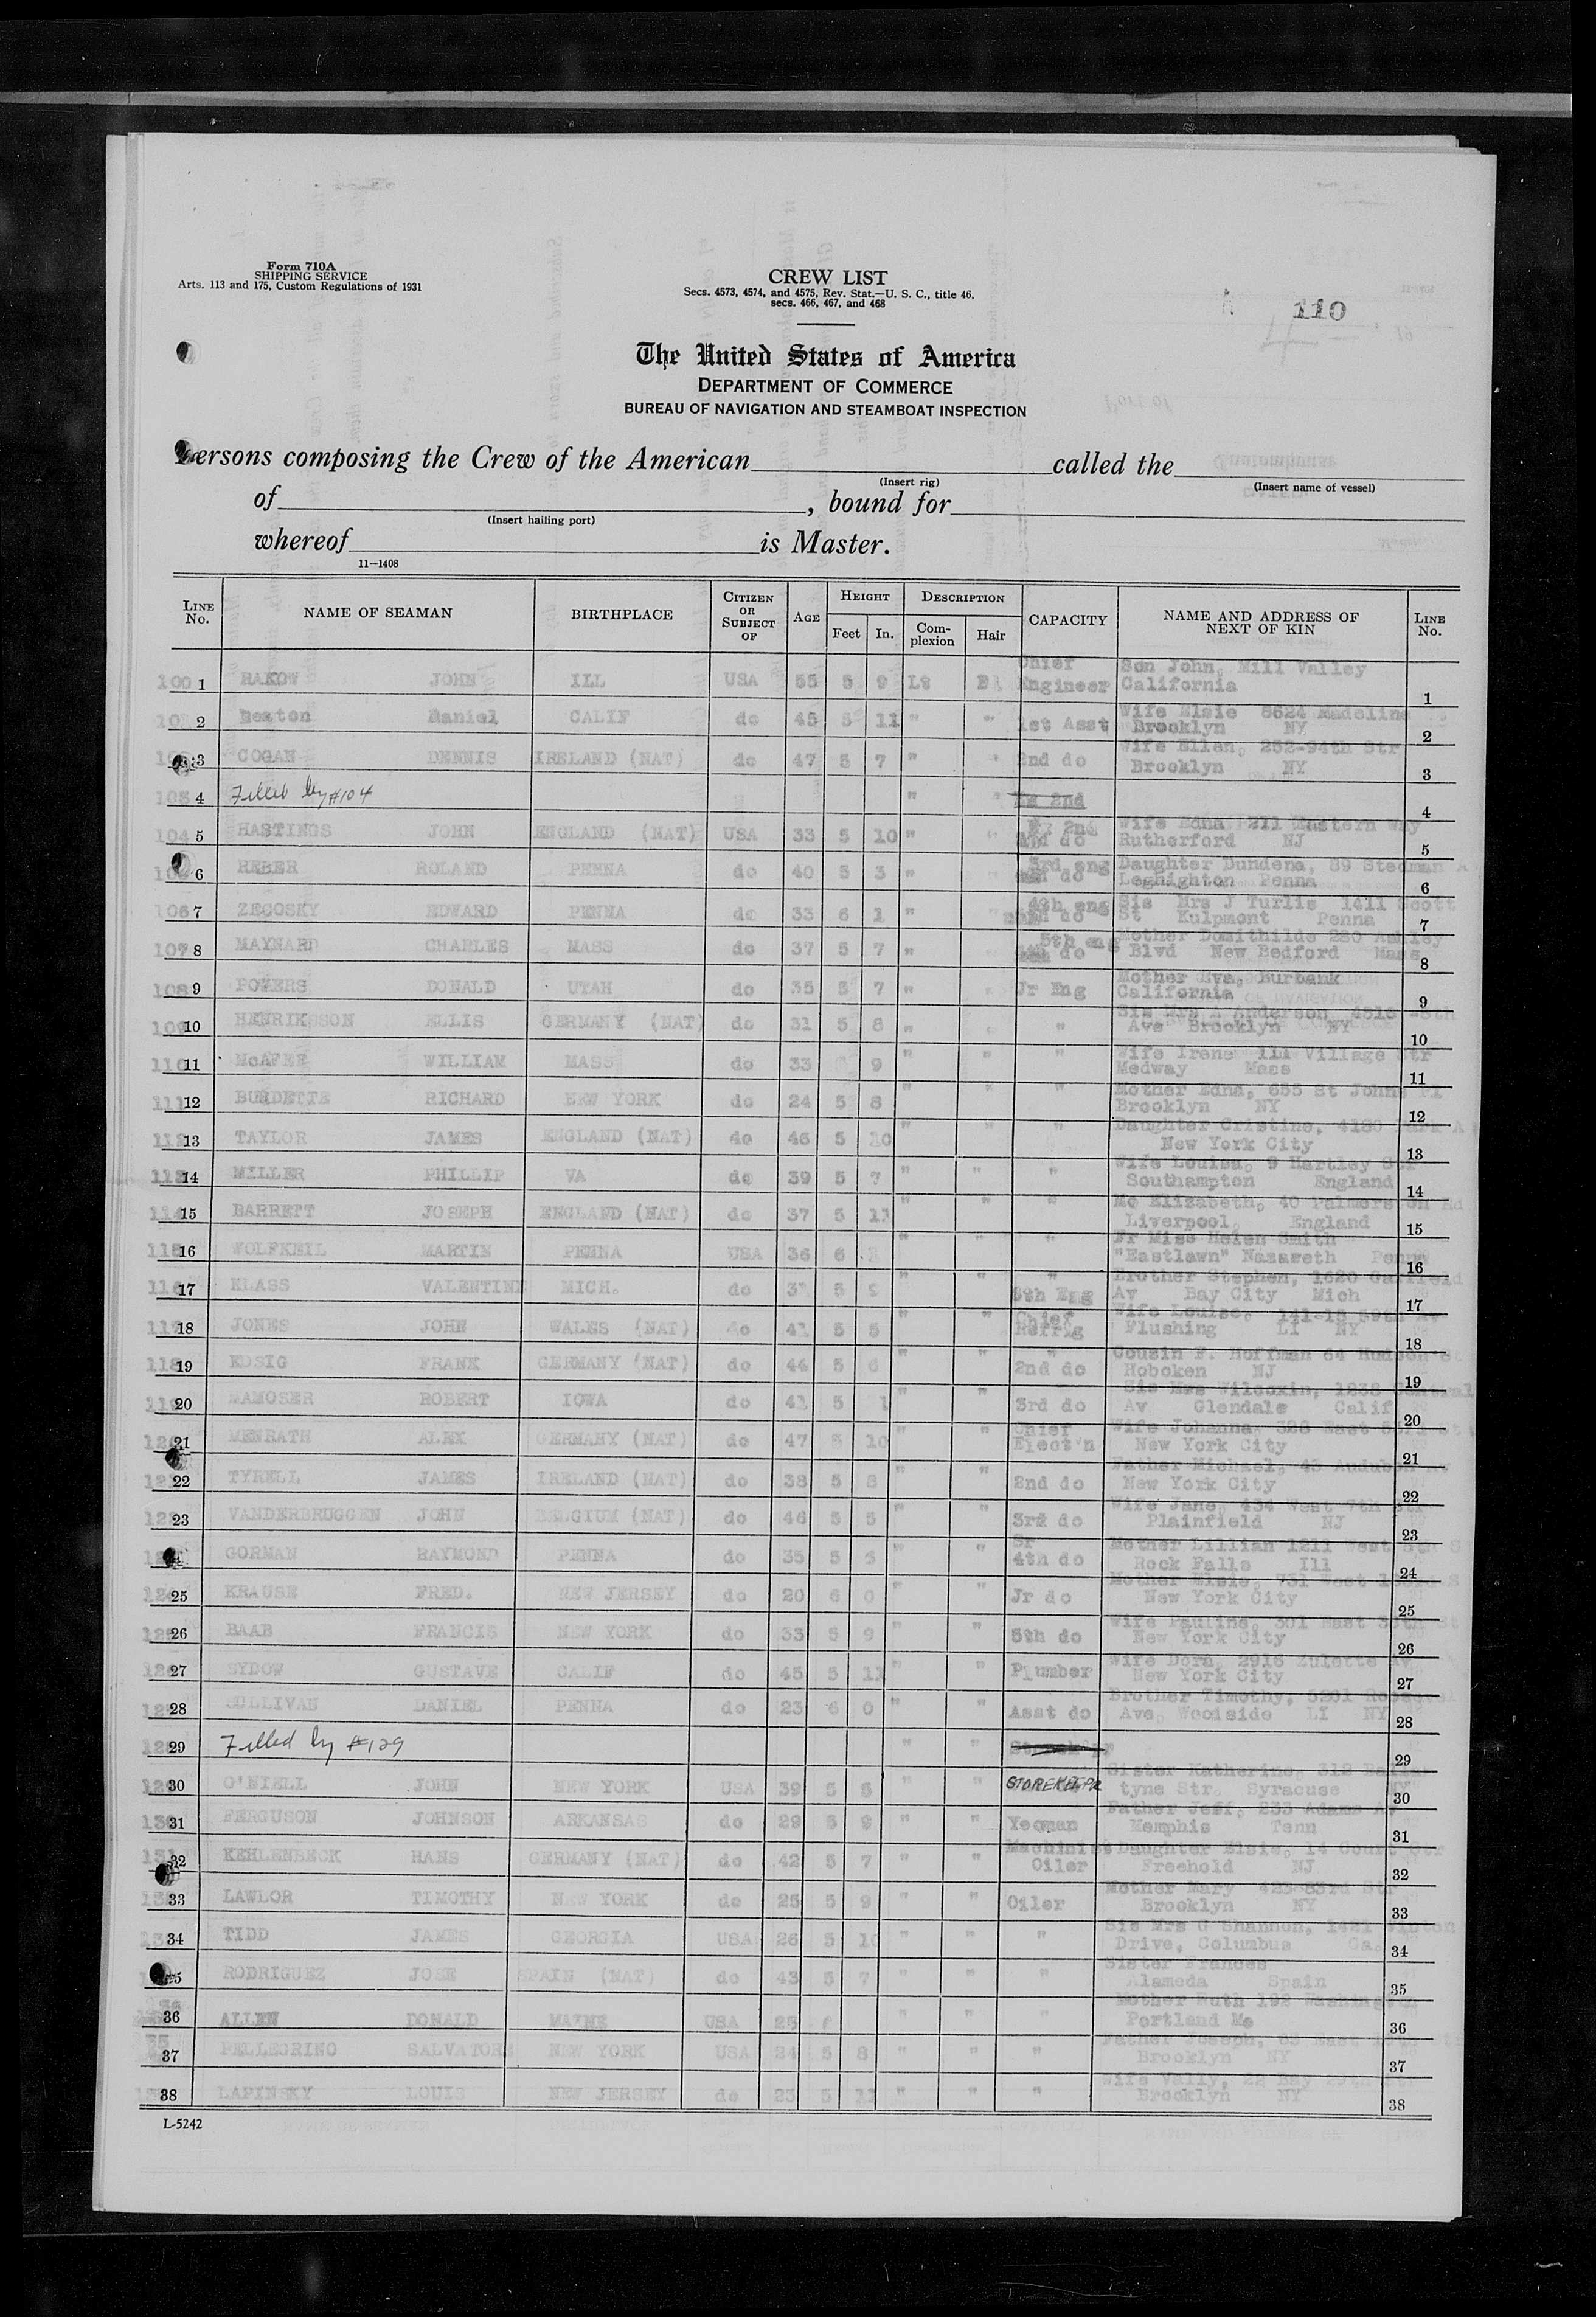 Form 710A
SHIPPING SERVICE
Arts. 113 and 175, Custom Regulations of 1931
CREW LIST
Secs. 4573, 4574, and 4575, Rev. Stat.—U. S. C., title 46,
secs. 466, 467, and 468
110
The United States of America
DEPARTMENT OF COMMERCE
BUREAU OF NAVIGATION AND STEAMBOAT INSPECTION
Persons composing the Crew of the American called the
(Insert rig) (Insert name of vessel)
of , bound for
(Insert hailing port)
whereof is Master.
11—1408
LINE No. NAME OF SEAMAN BIRTHPLACE CITIZEN OR SUBJECT OF AGE HEIGHT Feet In. DESCRIPTION Complexion Hair CAPACITY NAME AND ADDRESS OF NEXT OF KIN LINE No.
100 1 RAKOW JOHN ILL USA 55 5 9 Lt Bl Chief Engineer Son John, Mill Valley California 1
2 Daniel CALIF do 45 5 11 " " 1st Asst Wife Elsie 8624 Madeline Brooklyn NY 2
3 COGAN DENNIS IRELAND (NAT) do 47 5 7 " " 2nd do Wife Ellen, 252-94th Str Brooklyn NY 3
4 Filled by #104 " " 2nd 4
104 5 HASTINGS JOHN ENGLAND (NAT) USA 33 5 10 " " 2nd Wife Edna 211 Eastern Way Rutherford NJ 5
6 REBER ROLAND PENNA do 40 5 3 " " 3rd eng Daughter Dundena, 89 Stedman A Leghighton Penna 6
106 7 ZEGOSKY EDWARD PENNA do 33 6 1 " " 4th eng Sis Mrs J Turlis 1411 Scott St Kulpmont Penna 7
107 8 MAYNARD CHARLES MASS do 37 5 7 " 5th eng Mother Domithilde 280 Ashley Blvd New Bedford Mass 8
108 9 POWERS DONALD UTAH do 35 5 7 " " Jr Eng Mother Eva, Burbank California 9
109 10 HENRIKSSON ELLIS GERMANY (NAT) do 31 5 8 " " Sis Mrs Anderson Ave Brooklyn NY 10
110 11 McAFER WILLIAM MASS do 33 9 " " " Wife Irene 111 Village Str Medway Mass 11
111 12 BURDETTE RICHARD NEW YORK do 24 5 8 " " " Mother Edna, 655 St Johns Pl Brooklyn NY 12
112 13 TAYLOR JAMES ENGLAND (NAT) do 46 5 10 " " " Daughter Cristine, New York City 13
113 14 MILLER PHILLIP VA do 39 5 7 " " " Wife Louisa, 9 Hartley Str Southampton England 14
114 15 BARRETT JOSEPH ENGLAND (NAT) do 37 5 11 " " " Mo Elizabeth, 40 Palmerston Rd Liverpool, England 15
115 16 WOLFKEIL MARTIN PENNA USA 36 6 " " " Fr Miss Helen Smith "Eastlawn" Nazareth Penna 16
116 17 KLASS VALENTINE MICH. do 5 9 " " 5th Eng Brother Stephen, 1620 Garfield Av Bay City Mich 17
117 18 JONES JOHN WALES (NAT) do 41 5 5 " " Chief Refrig Wife Louise, 141-15 59th Av Flushing LI NY 18
118 19 FRANK GERMANY (NAT) do 44 5 6 " " 2nd do Cousin F. Hoffman 64 Hudson St Hoboken NJ 19
119 20 MAMOSER ROBERT IOWA do 41 5 " " 3rd do Sis Mrs Wilcoxin, 1238 Central Av Glendale Calif 20
120 21 MENRATH ALEX GERMANY (NAT) do 47 5 10 " " Chief Elect'n Wife Johanna, 328 East 53rd St New York City 21
22 TYRELL JAMES IRELAND (NAT) do 38 5 8 " " 2nd do Father Michael, 45 Audubon Av New York City 22
23 VANDERBRUGGEN JOHN BELGIUM (NAT) do 46 5 5 " " 3rd do Wife Jane, 434 West 7th Str Plainfield NJ 23
GORMAN RAYMOND PENNA do 35 5 " " Sr 4th do Mother Lillian 1211 West Rock Falls Ill 24
25 KRAUSE FRED. NEW JERSEY do 20 6 0 " " Jr do Mother Elsie, New York City 25
26 BAAB FRANCIS NEW YORK do 33 5 9 " " 5th do Wife Pauline, 301 East New York City 26
27 SYDOW GUSTAVE CALIF do 45 5 11 " " Plumber Wife Dora, 2916 Zulette Av New York City 27
28 SULLIVAN DANIEL PENNA do 23 6 0 " " Asst do Brother Timothy, Ave, Woodside LI NY 28
29 Filled by #129 " " 29
30 O'NIELL JOHN NEW YORK USA 39 5 5 " " STOREKEEPR Sister Katherine, 318 tyne Str. Syracuse NY 30
31 FERGUSON JOHNSON ARKANSAS do 29 5 9 " " Yeoman Father Jeff, 233 Adams Av Memphis Tenn 31
32 KEHLENBECK HANS GERMANY (NAT) do 42 5 7 " " Machinist Oiler Daughter Elsie, 14 Court Str Freehold NJ 32
33 LAWLOR TIMOTHY NEW YORK do 25 5 9 " " Oiler Mother Mary 423-83rd Str Brooklyn NY 33
34 TIDD JAMES GEORGIA USA 26 5 10 " " " Sis Mrs C Shannon, Drive, Columbus Ga 34
35 RODRIGUEZ JOSE SPAIN (NAT) do 43 5 7 " " " Sister Frances Alameda Spain 35
36 ALLEN DONALD MAINE USA 25 " " " Mother Ruth 198 Washington Portland Me 36
37 PELLEGRINO SALVATORE NEW YORK USA 24 5 8 " " " Father Joseph, Brooklyn NY 37
38 LAPINSKY LOUIS NEW JERSEY do 23 5 11 " " " Wife Vally, 22 Bay 29th Brooklyn NY 38
L-5242